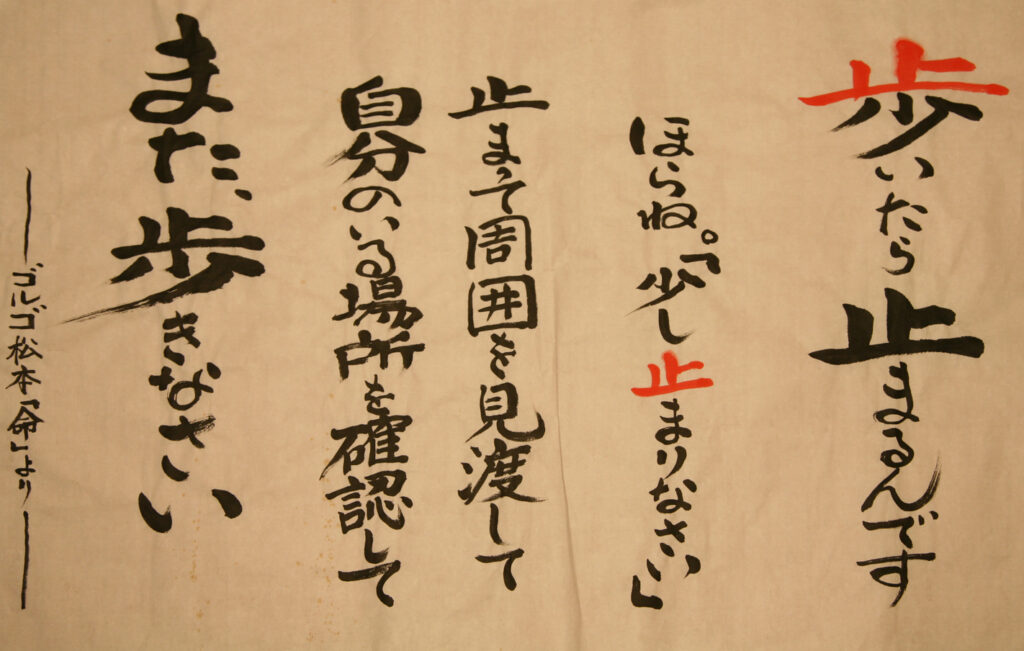 歩いたら止まるんです
ほらね。「少し止まりなさい」
止まって周囲を見渡して
自分のいる場所を確認して
また、歩きなさい
――ゴルゴ松本「命」より――